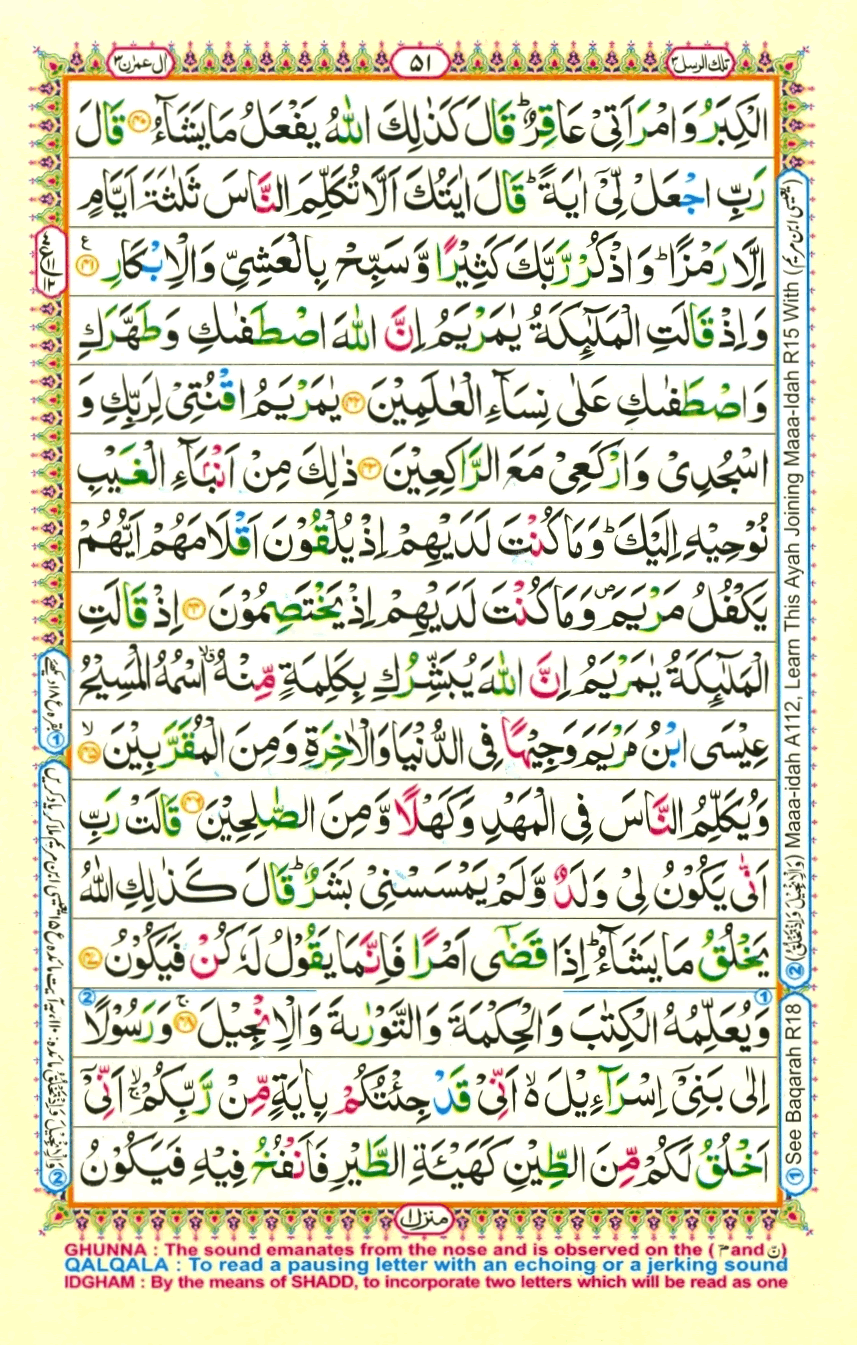 تلك الرسل ٣
٥١
اٰل عمرٰن ٣
الْكِبَرُ وَامْرَاَتِىْ عَاقِرٌ ؕ قَالَ كَذٰلِكَ اللّٰهُ يَفْعَلُ مَا يَشَآءُ ﴿۴۰﴾ قَالَ
رَبِّ اجْعَلْ لِّىْۤ اٰيَةً ؕ قَالَ اٰيَتُكَ اَلَّا تُكَلِّمَ النَّاسَ ثَلٰثَةَ اَيَّامٍ
اِلَّا رَمْزًا ؕ وَاذْكُرْ رَّبَّكَ كَثِيْرًا وَّسَبِّحْ بِالْعَشِىِّ وَالْاِبْكَارِ ﴿۴۱﴾ ع
وَاِذْ قَالَتِ الْمَلٰٓئِكَةُ يٰمَرْيَمُ اِنَّ اللّٰهَ اصْطَفٰىكِ وَطَهَّرَكِ
وَاصْطَفٰىكِ عَلٰى نِسَآءِ الْعٰلَمِيْنَ ﴿۴۲﴾ يٰمَرْيَمُ اقْنُتِىْ لِرَبِّكِ وَ
اسْجُدِىْ وَارْكَعِىْ مَعَ الرّٰكِعِيْنَ ﴿۴۳﴾ ذٰلِكَ مِنْ اَنْۢبَآءِ الْغَيْبِ
نُوْحِيْهِ اِلَيْكَ ؕ وَمَا كُنْتَ لَدَيْهِمْ اِذْ يُلْقُوْنَ اَقْلَامَهُمْ اَيُّهُمْ
يَكْفُلُ مَرْيَمَ ۪ وَمَا كُنْتَ لَدَيْهِمْ اِذْ يَخْتَصِمُوْنَ ﴿۴۴﴾ اِذْ قَالَتِ
الْمَلٰٓئِكَةُ يٰمَرْيَمُ اِنَّ اللّٰهَ يُبَشِّرُكِ بِكَلِمَةٍ مِّنْهُ ۖۗ اسْمُهُ الْمَسِيْحُ
عِيْسَى ابْنُ مَرْيَمَ وَجِيْهًا فِى الدُّنْيَا وَالْاٰخِرَةِ وَمِنَ الْمُقَرَّبِيْنَ ﴿۴۵﴾ ۙ
وَيُكَلِّمُ النَّاسَ فِى الْمَهْدِ وَكَهْلًا وَّمِنَ الصّٰلِحِيْنَ ﴿۴۶﴾ قَالَتْ رَبِّ
اَنّٰى يَكُوْنُ لِىْ وَلَدٌ وَّلَمْ يَمْسَسْنِىْ بَشَرٌ ؕ قَالَ كَذٰلِكِ اللّٰهُ
يَخْلُقُ مَا يَشَآءُ ؕ اِذَا قَضٰۤى اَمْرًا فَاِنَّمَا يَقُوْلُ لَهٗ كُنْ فَيَكُوْنُ ﴿۴۷﴾
وَيُعَلِّمُهُ الْكِتٰبَ وَالْحِكْمَةَ وَالتَّوْرٰىةَ وَالْاِنْجِيْلَ ﴿۴۸﴾ ۚ وَرَسُوْلًا
اِلٰى بَنِىْۤ اِسْرَآءِيْلَ ۙ اَنِّىْ قَدْ جِئْتُكُمْ بِاٰيَةٍ مِّنْ رَّبِّكُمْ ۙ اَنِّىْۤ
اَخْلُقُ لَكُمْ مِّنَ الطِّيْنِ كَهَيْئَةِ الطَّيْرِ فَاَنْفُخُ فِيْهِ فَيَكُوْنُ
منزل ١
① See Baqarah R18
② (وَالْاِنْجِيْلَ وَاِذْ تَخْلُقُ) Maaa-idah A112, Learn This Ayah Joining Maaa-Idah R15 With (يٰعيسى ابن مريم)
GHUNNA : The sound emanates from the nose and is observed on the ( مّ and نّ )
QALQALA : To read a pausing letter with an echoing or a jerking sound
IDGHAM : By the means of SHADD, to incorporate two letters which will be read as one